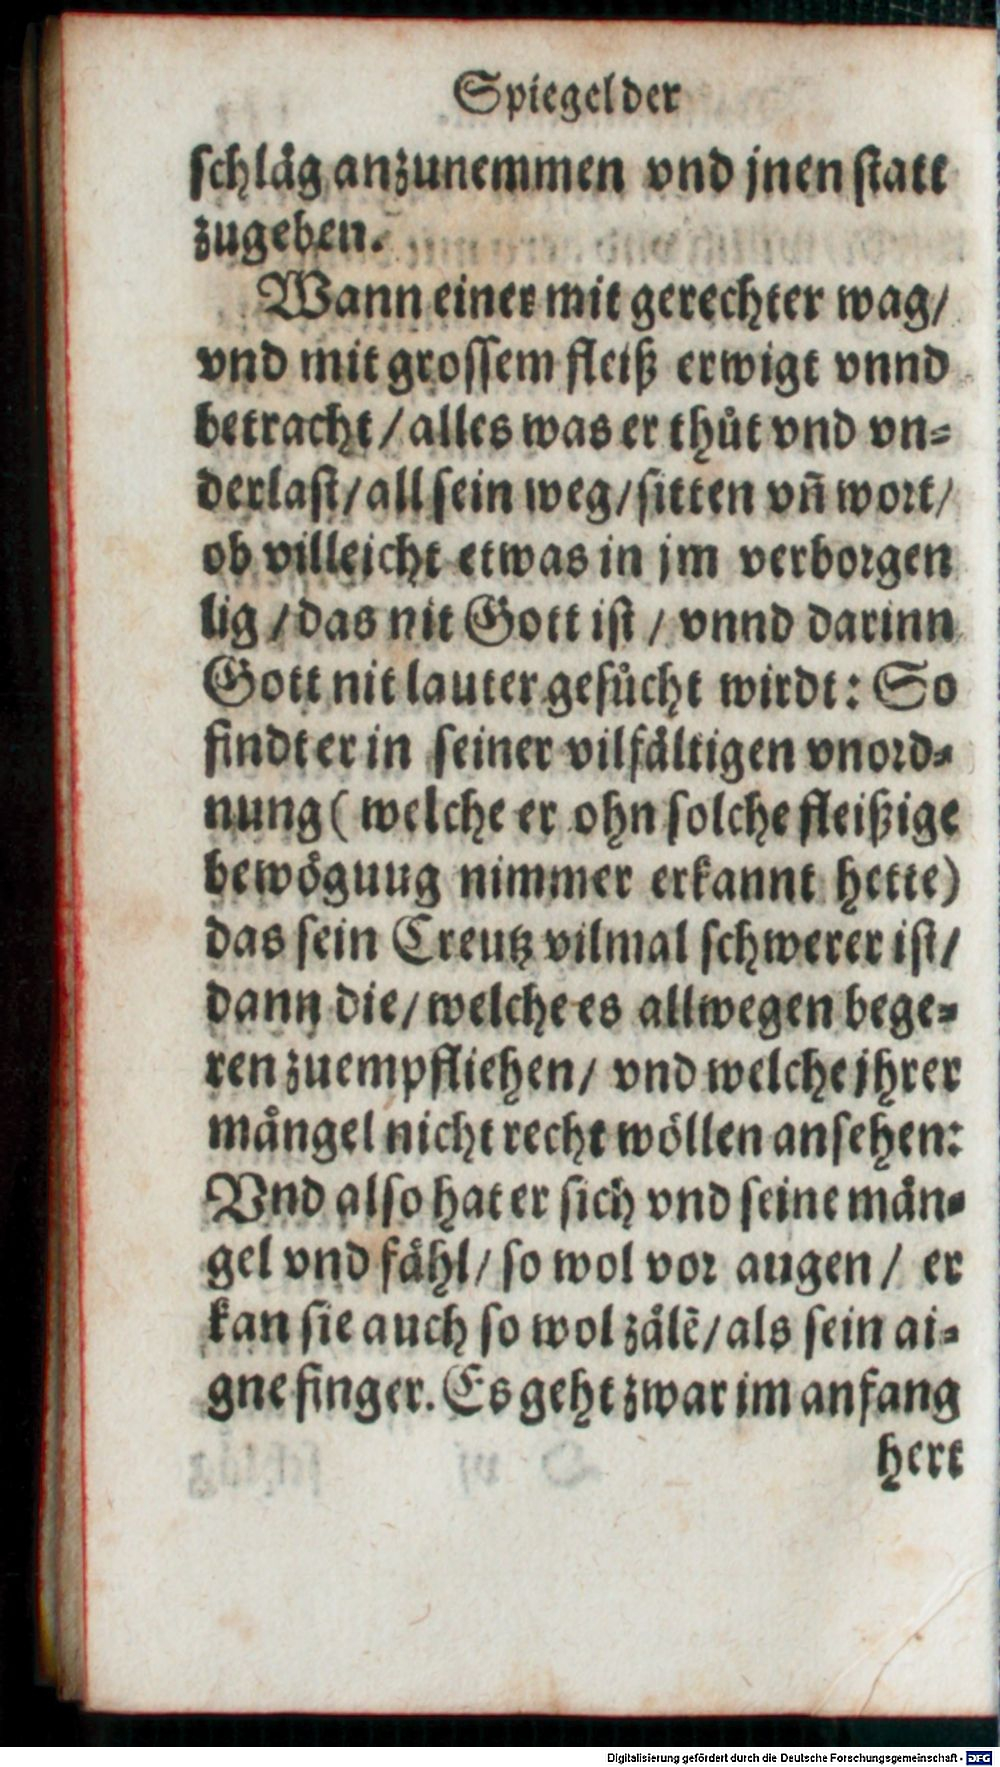 Spiegel der
schlåg anzunemmen vnd jnen statt
zugeben.
Wann einer mit gerechter wag/
vnd mit grossem fleiß erwigt vnnd
betracht / alles was er thůt vnd vn=
derlast / all sein weg / sitten vñ wort /
ob villeicht etwas in jm verborgen
lig / das nit Gott ist / vnnd darinn
Gott nit lauter gesůcht wirdt: So
findt er in seiner vilfåltigen vnord=
nung ( welche er ohn solche fleißige
bewögung nimmer erkannt hette)
das sein Creutz vilmal schwerer ist /
dann die / welche es allwegen bege=
ren zuempfliehen / vnd welche jhrer
mångel nicht recht wöllen ansehen:
Vnd also hat er sich vnd seine mån=
gel vnd fåhl / so wol vor augen / er
kan sie auch so wol zålē / als sein ai=
gne finger. Es geht zwar im anfang
hert
Digitalisierung gefördert durch die Deutsche Forschungsgemeinschaft - DFG